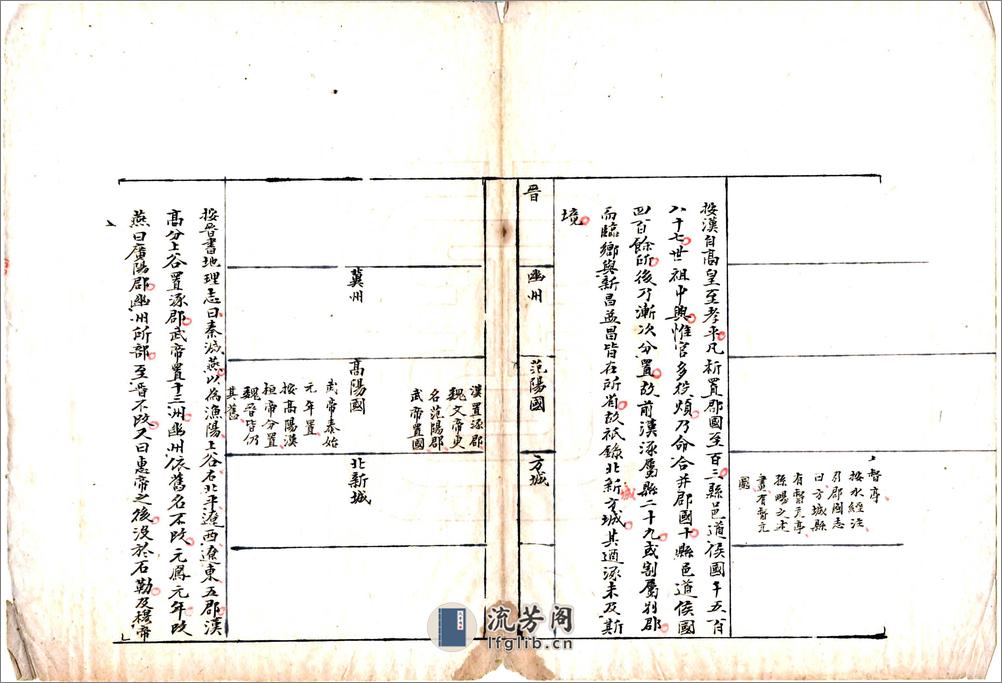 督亢亭
按水經注
引郡國志
曰方城縣
有督亢亭
孫暢之述
畫有督亢
圖
按漢自高皇至孝平凡析置郡國至百三縣邑道侯國千五百
八十七世祖中興惟官多役煩乃命合并郡國十縣邑道侯國
四百餘所後乃漸次分置故前漢涿屬縣二十九或割屬別郡
而臨鄉與新昌益昌皆在所省故祇錄北新方城其逎涿未及斯
城
境
晉
幽州
范陽國
方城
漢置涿郡
魏文帝更
名范陽郡
武帝置國
冀州
高陽國
武帝泰始
元年置
按高陽漢
桓帝分置
魏晉皆仍
其舊
北新城
按晉書地理志曰秦滅燕以為漁陽上谷右北平遼西遼東五郡漢
高分上谷置涿郡武帝置十三州幽州依舊名不改元鳳元年改
燕曰廣陽郡幽州所部至晉不改又曰惠帝之後沒於石勒及穆帝
流芳阁
lfglib.cn